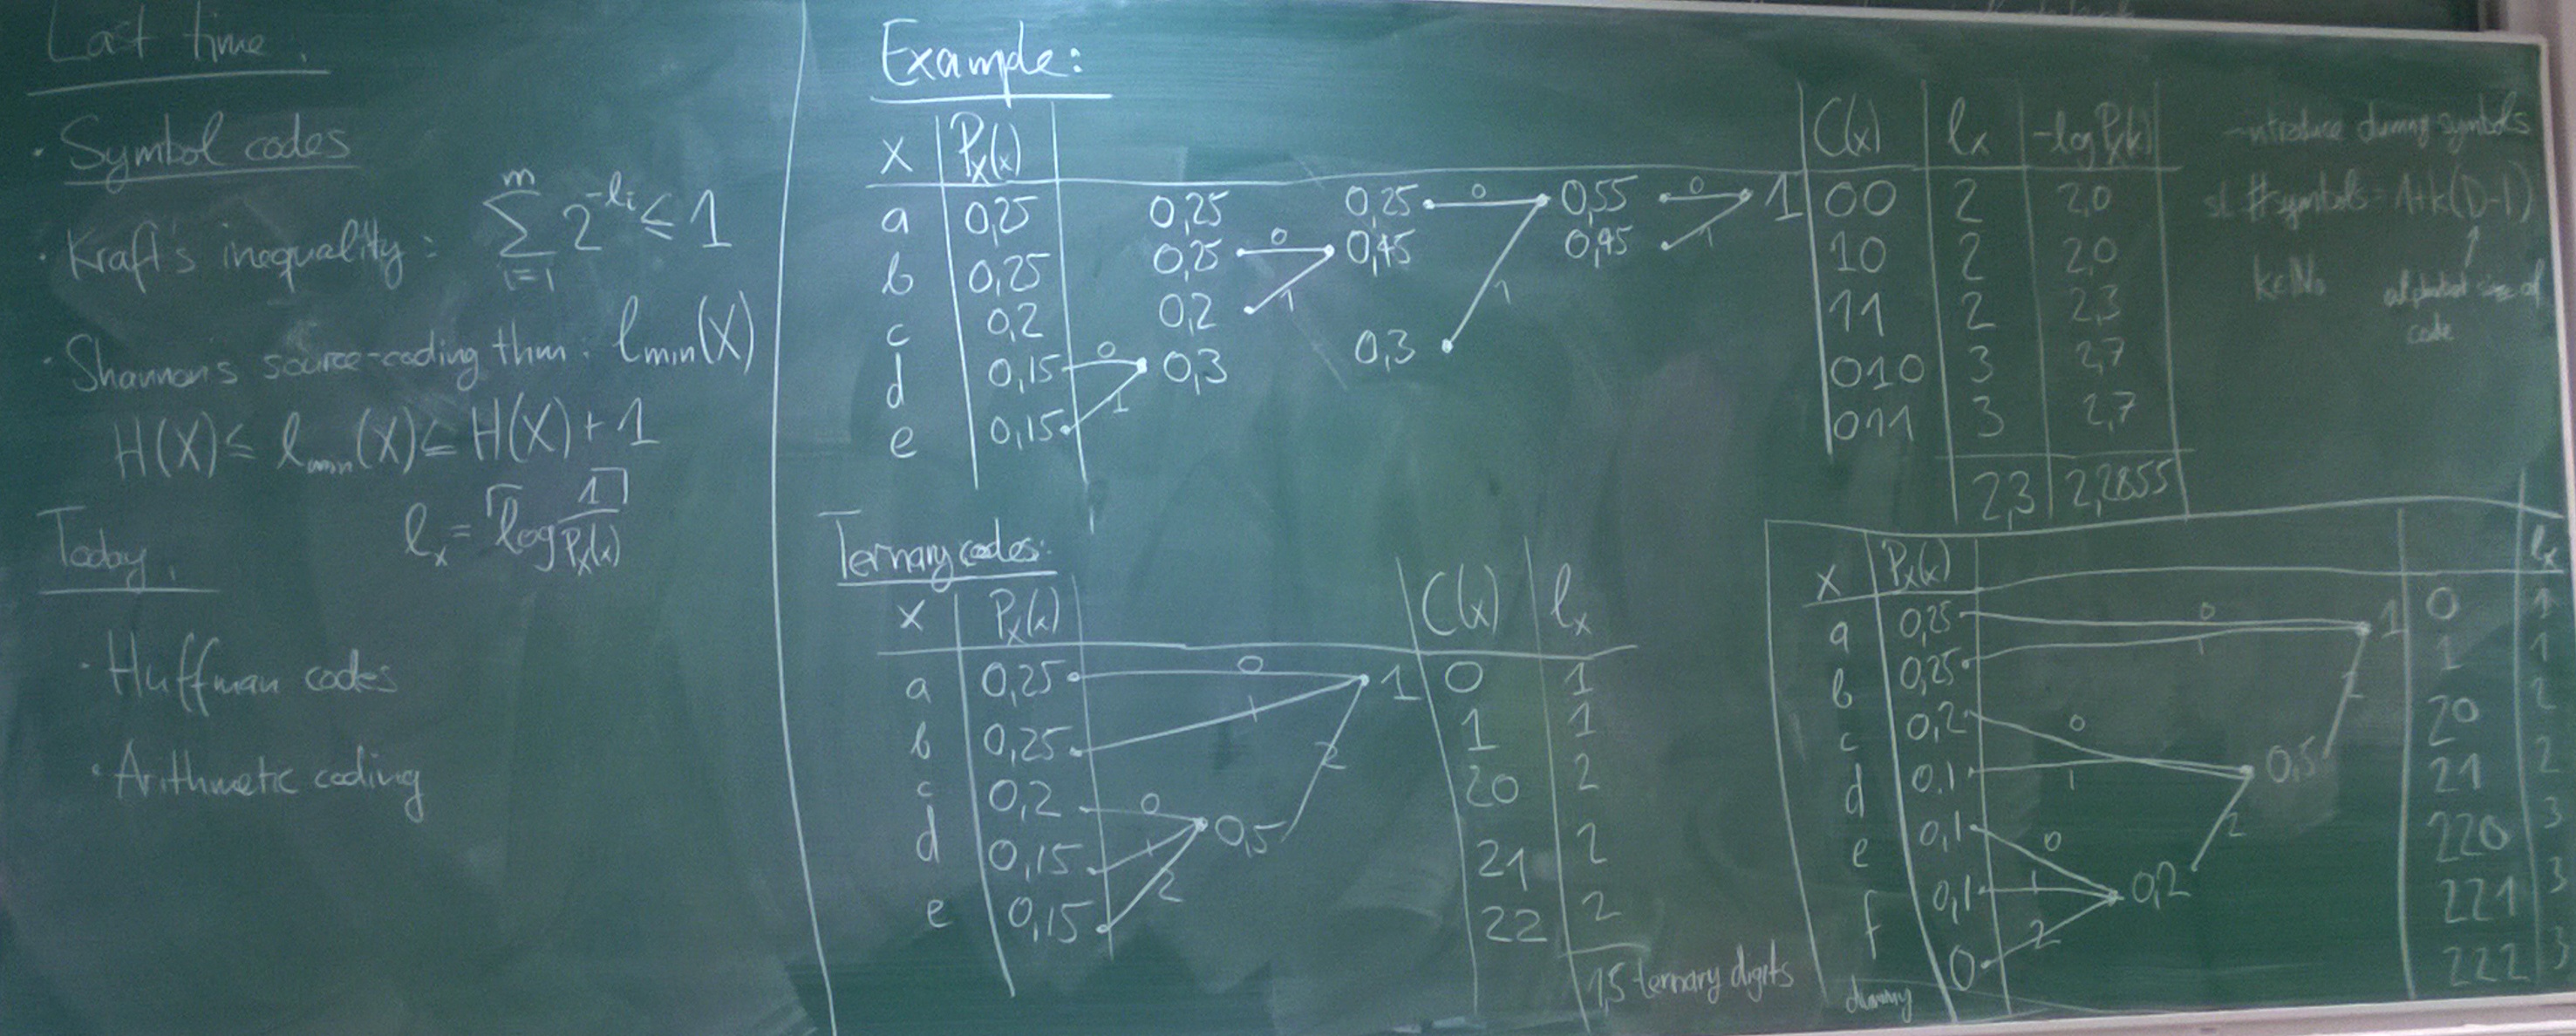 Last time.
· Symbol codes
· Kraft's inequality: \sum_{i=1}^{m} 2^{-l_i} ≤ 1
· Shannon's source-coding thm: l_min(X)
H(X) ≤ l_min(X) ≤ H(X) + 1
l_x = ⌈log 1/P_X(x)⌉
Today.
· Huffman codes
· Arithmetic coding
Example:
x P_X(x) C(x) l_x -log P_X(x)
a 0,25 0,25 0,25 0 0,55 0 1 00 2 2,0
b 0,25 0,25 0 0,45 0,45 1 10 2 2,0
c 0,2 0,2 1 1 11 2 2,3
d 0,15 0 0,3 0,3 010 3 2,7
e 0,15 1 011 3 2,7
2,3 2,2855
introduce dummy symbols
st #symbols = 1+k(D-1)
k∈ℕ₀ alphabet size of
code
Ternary codes:
x P_X(x) C(x) l_x
a 0,25 0 1 0 1
b 0,25 1 1 1
c 0,2 0 0,5 2 20 2
d 0,15 1 21 2
e 0,15 2 22 2
1,5 ternary digits
x P_X(x) l_x
a 0,25 0 1 0 1
b 0,25 1 1 1
c 0,2 0 2 20 2
d 0,1 1 0,5 21 2
e 0,1 0 2 220 3
f 0,1 1 0,2 221 3
dummy 0 2 222 3